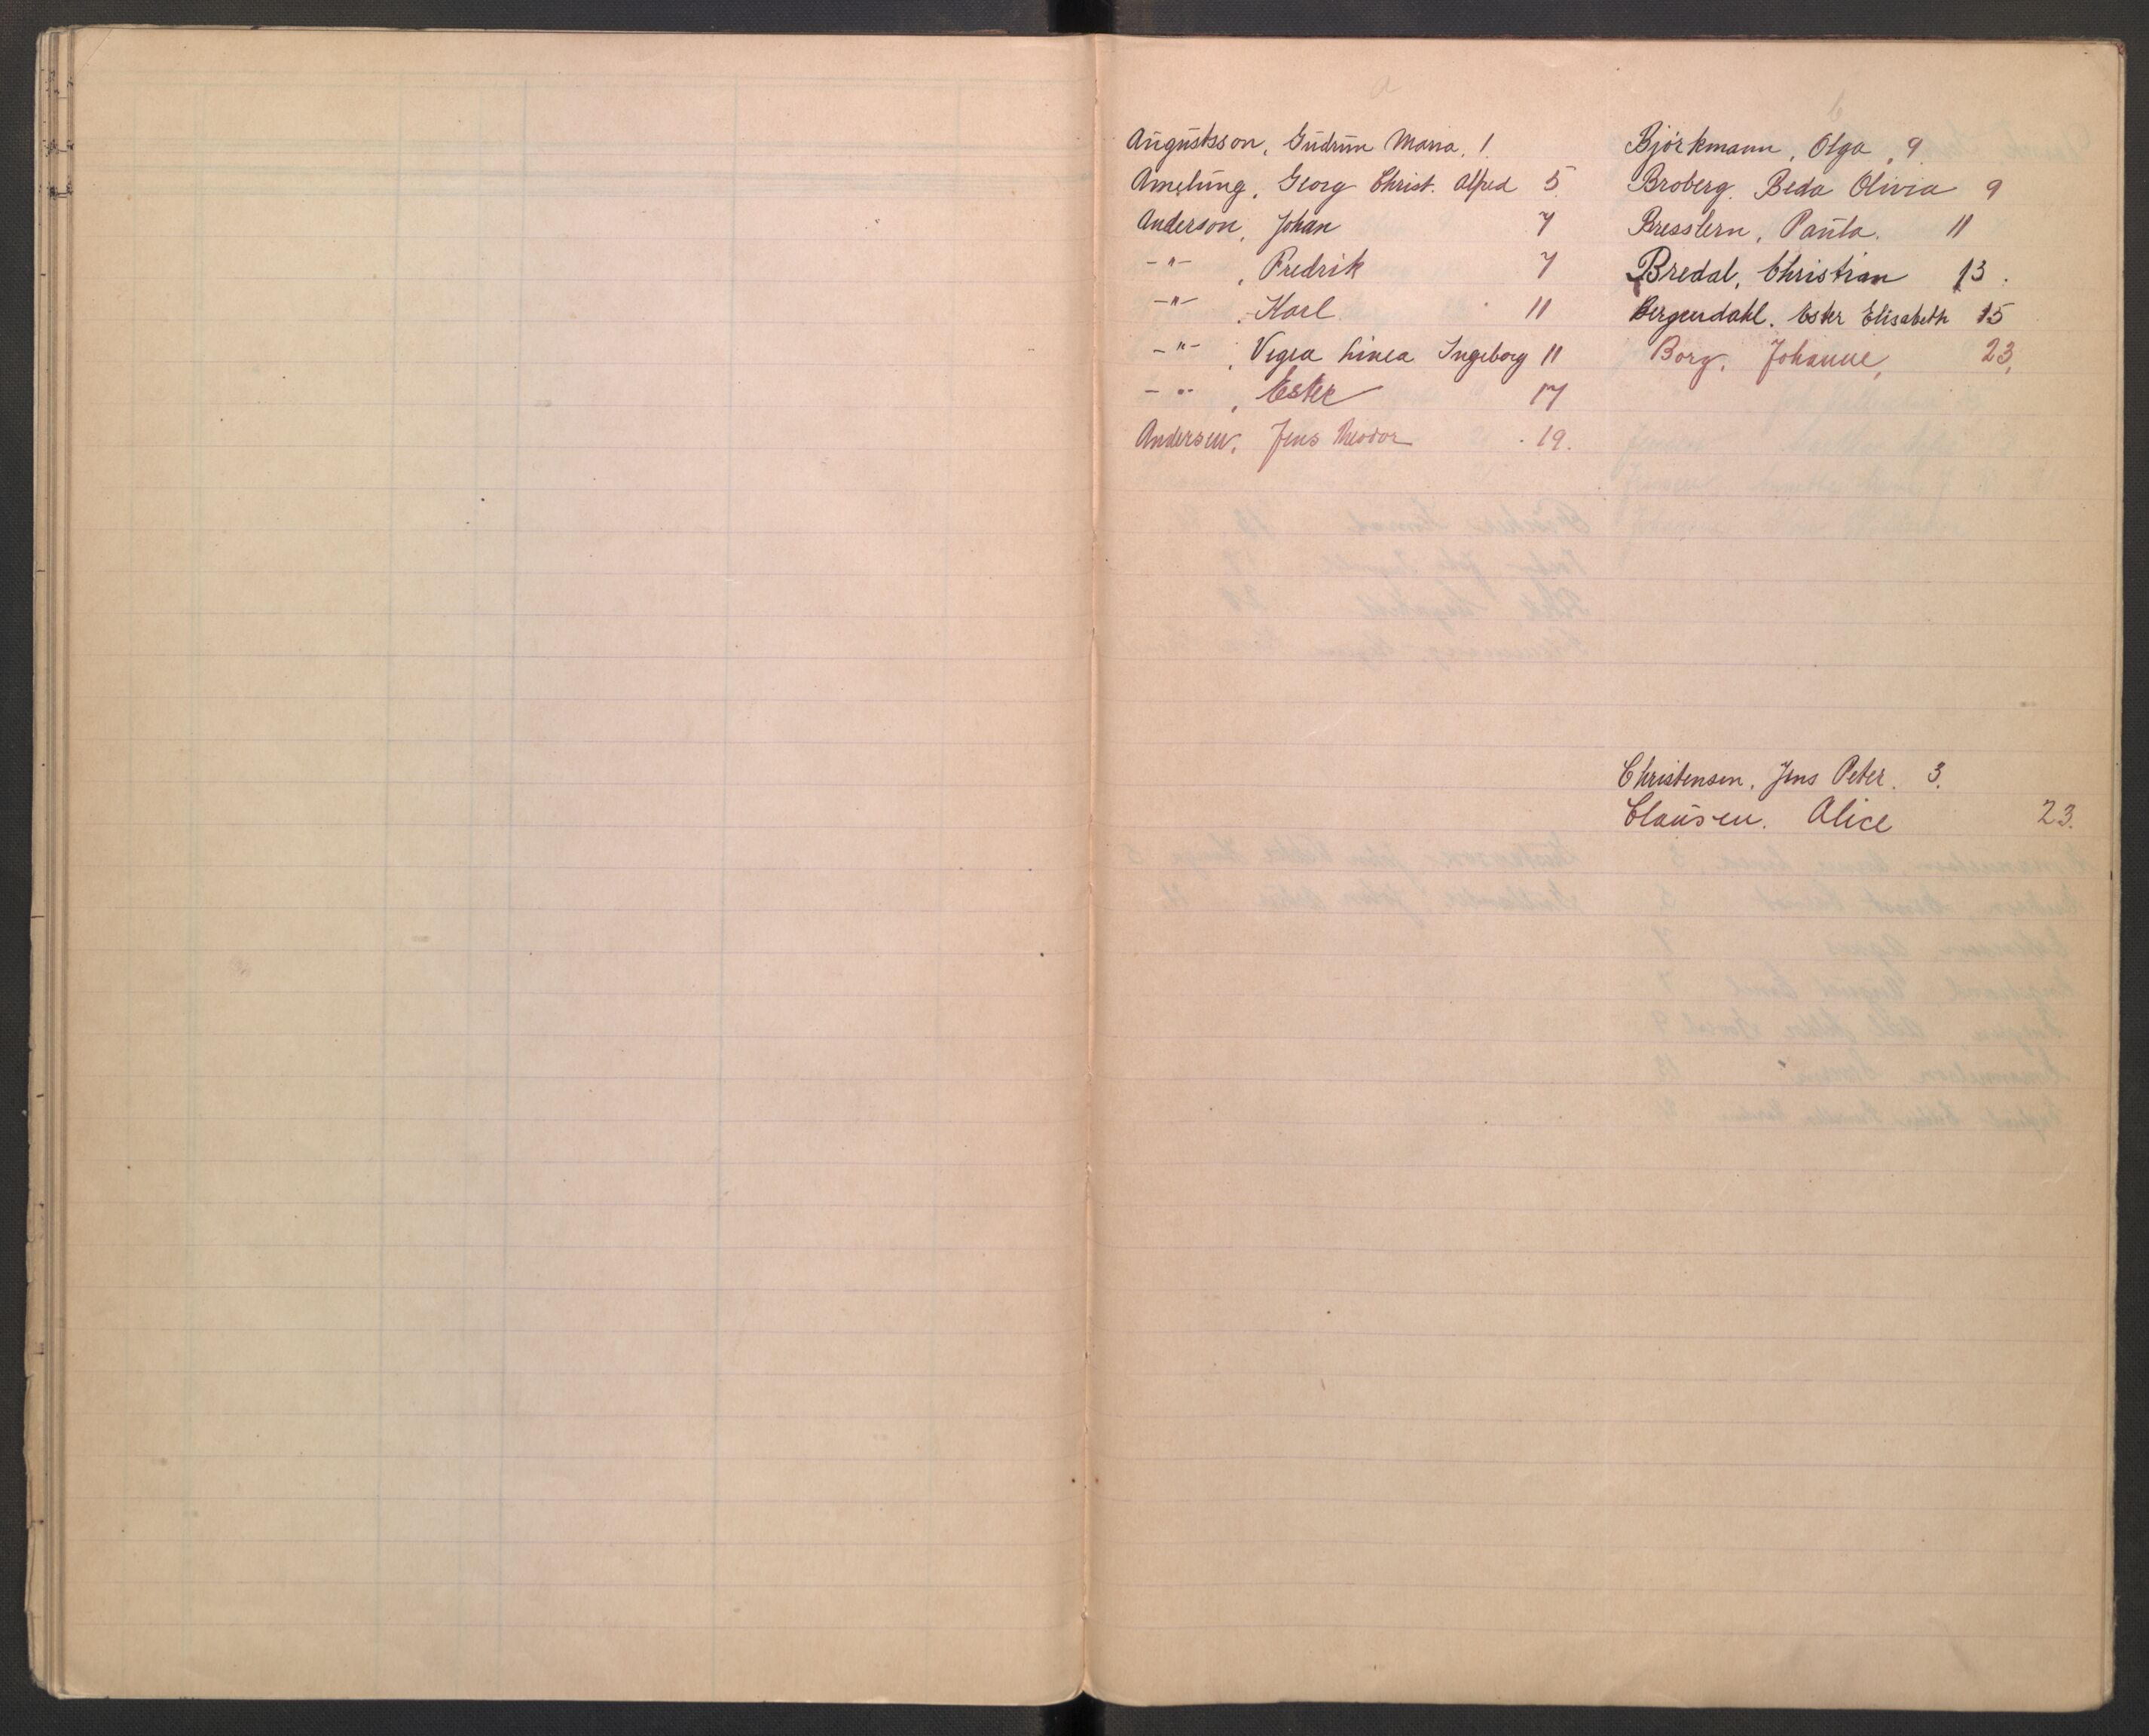 a
Augustsson, Gudrun Maria, 1.
Amelung, Georg Christ. Alfred 5.
Anderson, Johan 7
-"- , Fredrik 7
-"- , Karl 11
-"- , Linea Ingeborg 11
-"- , Ester 17
Andersen, Jens Theodor 19.
b
Björkmann, Olga, 9.
Broberg. Beda Olivia 9
Bresslern, Paula. 11
Bredal, Christian 13.
Bergendahl. Ester Elisabeth 15
Borg, Johanne, 23,
Christensen, Jens Peter. 3.
Clausen. Alice 23.